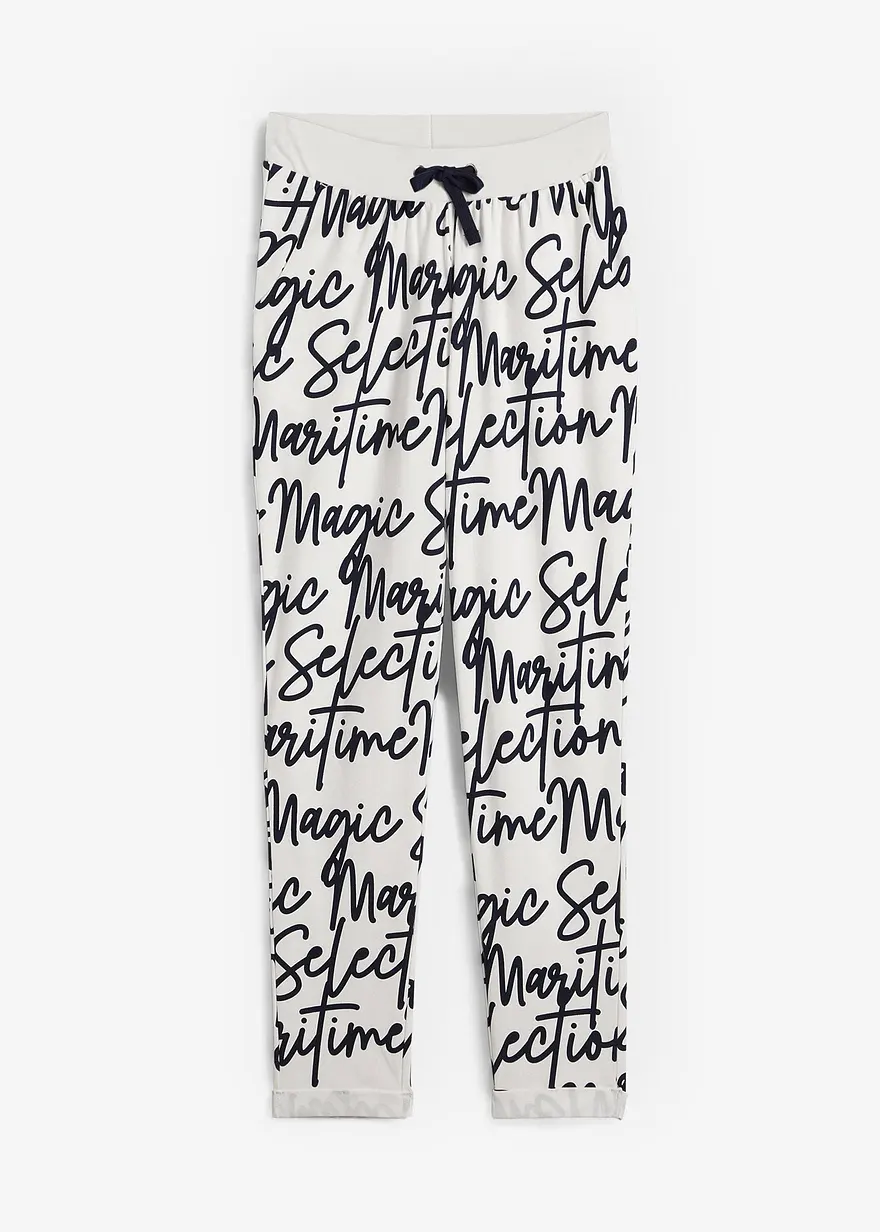 Magic
gic Mar gic Selec
c Selecti Maritime
Maritime lection M
Magic S time Mag
gic Mari agic Sele
Selecti Maritim
aritime election
Magic S time Ma
c Mar gic Sel
Select Mariti
ritime lection